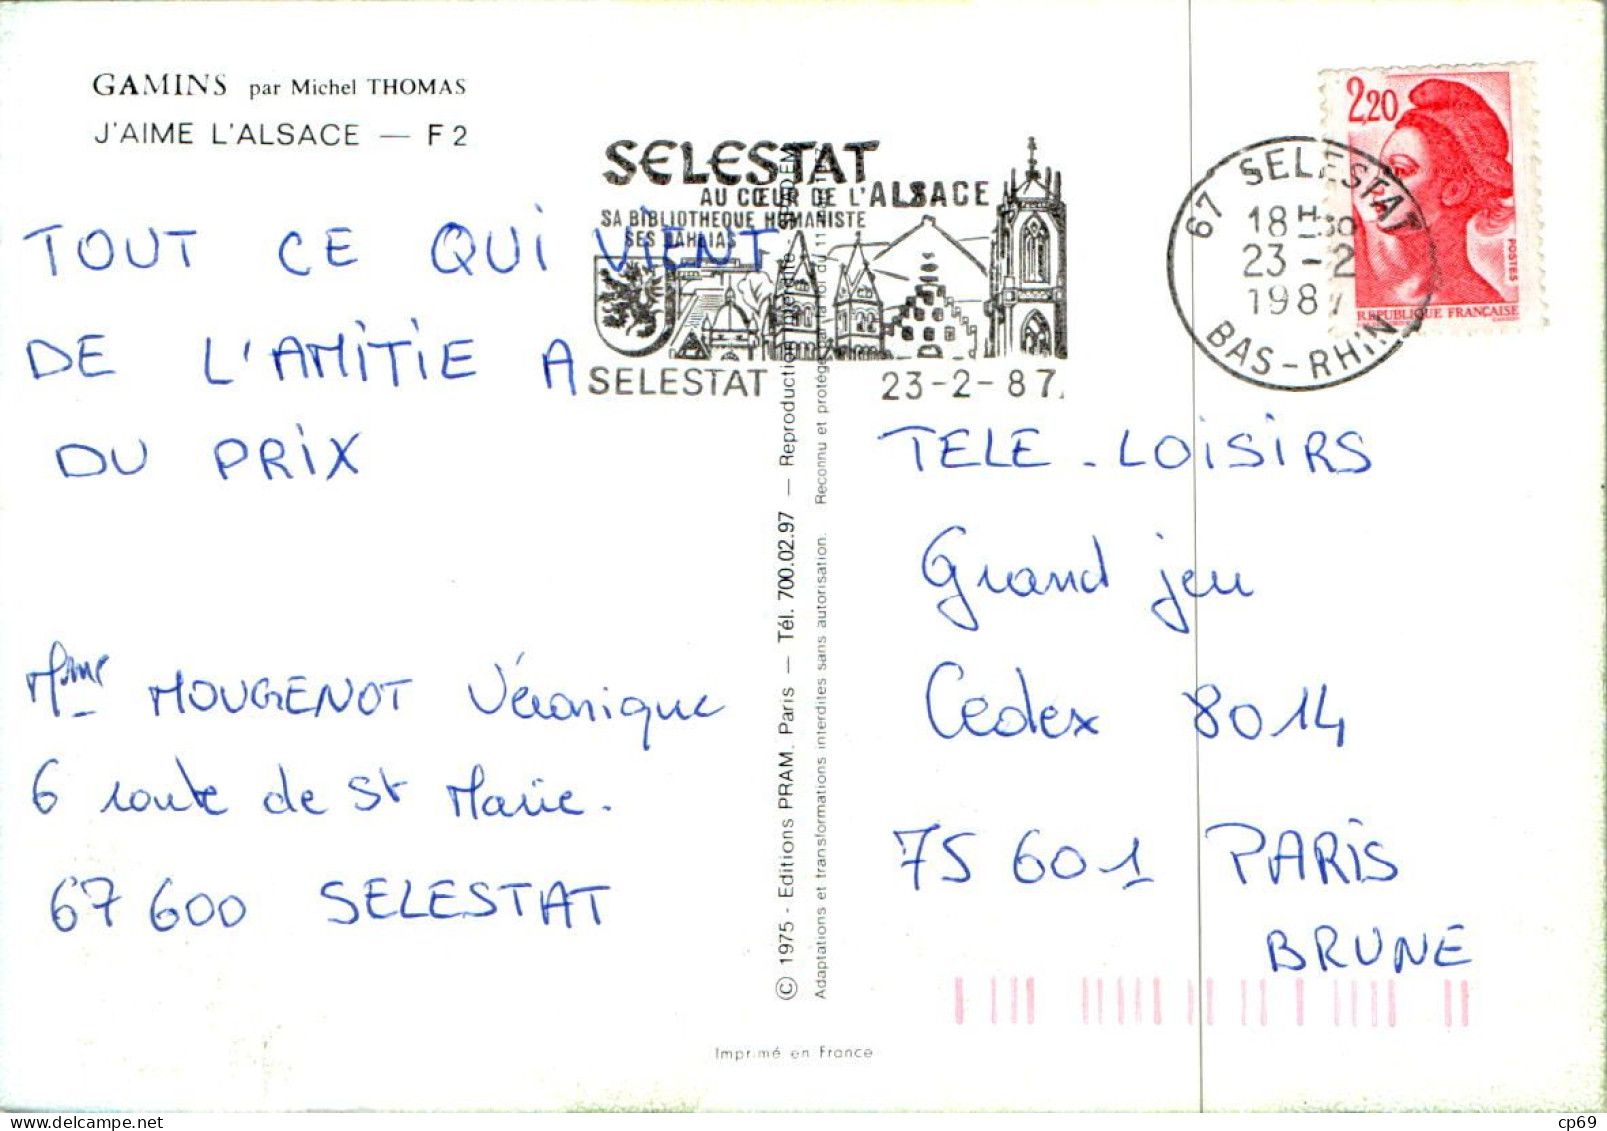 GAMINS par Michel THOMAS
J'AIME L'ALSACE — F 2
SELESTAT
AU CŒUR DE L'ALSACE
SA BIBLIOTHEQUE HUMANISTE
SES DAHLIAS
SELESTAT 23-2-87
2,20
POSTES
REPUBLIQUE FRANCAISE
67 SELESTAT
18 H 30
23 - 2
1987
BAS-RHIN
TOUT CE QUI VIENT
DE L'AMITIE A
DU PRIX
Mme MOUGENOT Véronique
6 route de St Marie.
67 600 SELESTAT
© 1975 - Editions PRAM. Paris — Tél. 700.02.97 — Reproduction
Adaptations et transformations interdites sans autorisation. Reconnu et protégé par la loi du 11
TELE - LOISIRS
Grand jeu
Cedex 8014
75 601 PARIS
BRUNE
Imprimé en France
delcampe.net
cp69